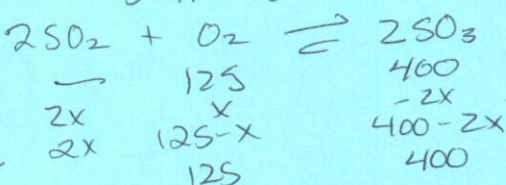 2SO2 + O2 ⇌ 2SO3
— 125 400
2x x -2x
2x 125-x 400-2x
125 400